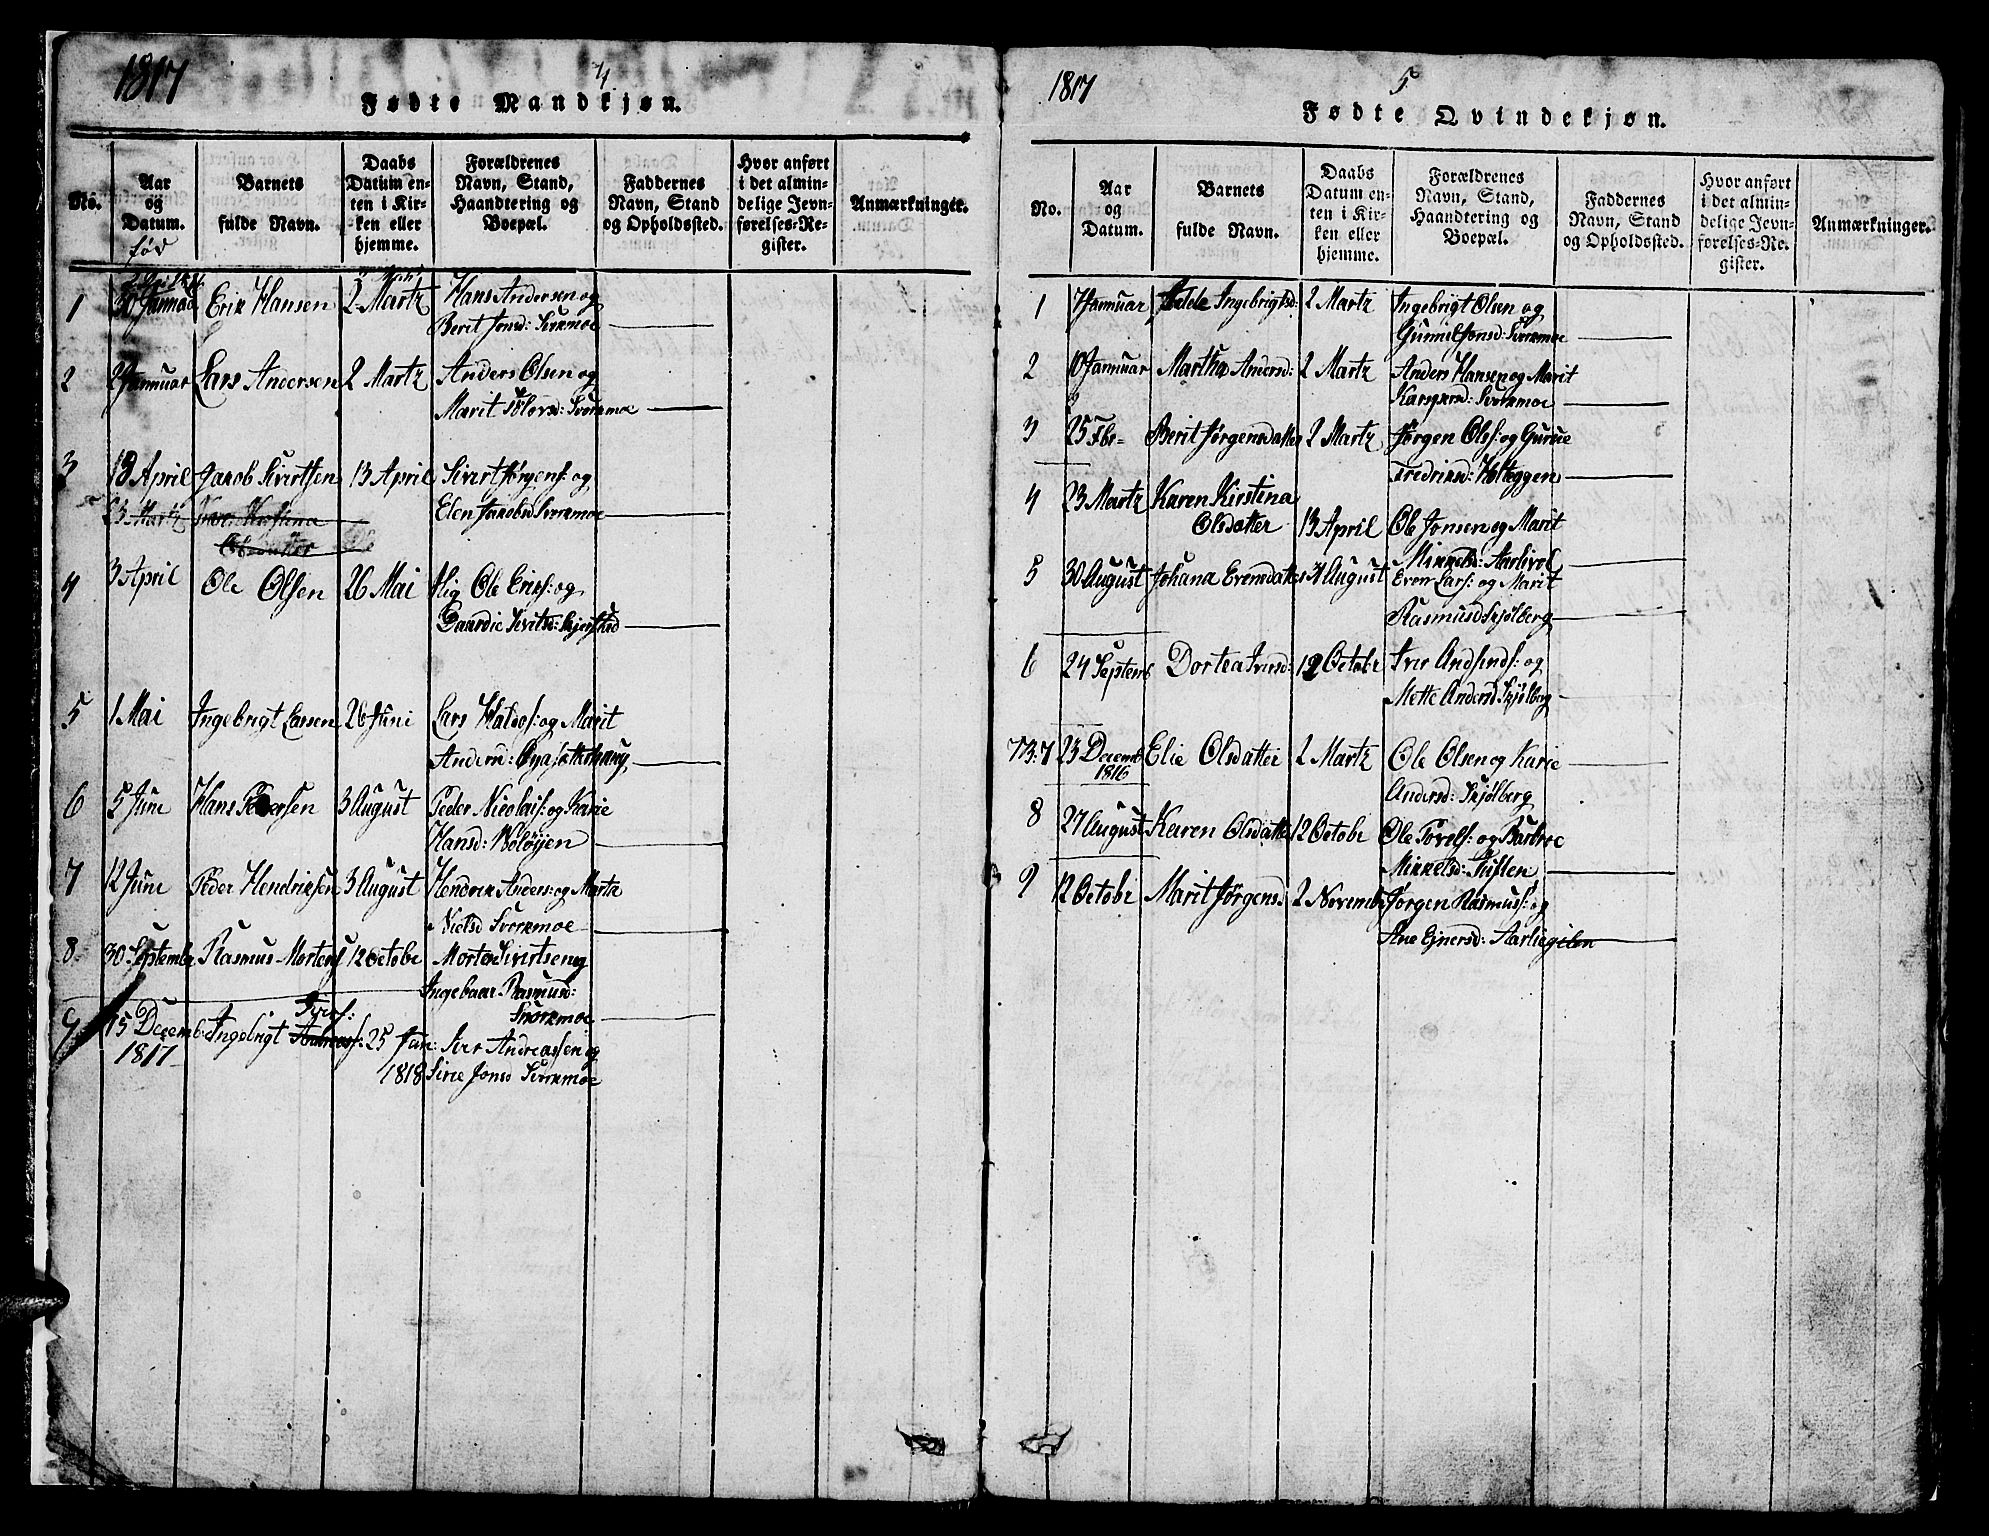 1817
4
Fødte Mandkjøn.
No.
Aar og Datum.
Barnets fulde Navn.
Daabs Datum enten i Kirken eller hjemme.
Forældrenes Navn, Stand, Haandtering og Boepæl.
Faddernes Navn, Stand og Opholdssted.
Hvor anført i det almindelige Jevnførelses-Register.
Anmærkninger.
fød
1 30 Januar Erik Hansen 2 Martz Hans Andersen og
Berit Jonsd: Svorkmoe
2 2 Januar Lars Andersen 2 Martz Anders Olsen og
Marit Svorkmoe
3 13 April Jakob Sivertsen 13 April Sivert Jørgens: og
Elen Jacobsd Svorkmoe
23 Martz
4 3 April Ole Olsen 26 Mai Ole Eriks: og
5 1 Mai Ingebrigt Larsen 26 Juni Lars og Marit
6 5 Juni Hans Pedersen 3 August Peder Nicolais: og Karie
Hansd:
7 12 Juni Peder Hendriksen 3 August Hendrik Anders: og Marta
Nielsd Svorkmoe
8 30 Septembr Rasmus Mortens 12 Octobr Morten Sivertsen og
Ingebaar Rasmusd:
Svorkmoe
Ivers:
9 15 Decemb: Ingebrigt Andreas: 25 Jan: Iver Andreassen og
1817 1818 Sirie Jonsd Svorkmoe
1817
5
Fødte Qvindekjøn.
No.
Aar og Datum.
Barnets fulde Navn.
Daabs Datum enten i Kirken eller hjemme.
Forældrenes Navn, Stand, Haandtering og Boepæl.
Faddernes Navn, Stand og Opholdssted.
Hvor anført i det almindelige Jevnførelses-Register.
Anmærkninger.
1 7 Januar Ingebrigtsd: 2 Martz Ingebrigt Olsen og
Gunnil Jonsd: Svorkmoe
2 10 Januar Martha Andersd: 2 Martz Anders Hansen og Marit
Kaspersd: Svorkmoe
3 25 Fbr Berit Jørgensdatter 2 Martz Jørgen Ols: og Gurue
Fredriksd: Holteggen
4 23 Martz Karen Kirstina
Olsdatter 13 April Ole Jonsen og Marit
Mikkelsd: Aarlivol
5 30 August Johana Evensdatter 31 August Even Lars: og Marit
Rasmusd Skjølberg
6 24 Septemb Dortea Iversd: 12 Octobr Iver og
Mette Andersd Skjølberg
7 23 Decemb Elie Olsdatter 2 Martz Ole Olsen og Karie
1816 Andersd: Skjølberg
8 27 August Karen Olsdatter 12 Octobr Ole Torels: og Barbroe
Mikkelsd:
9 12 Octobr Marit Jørgens: 2 Novemb: Jørgen Rasmus: og
Ane Ejnersd: Aarliegilen